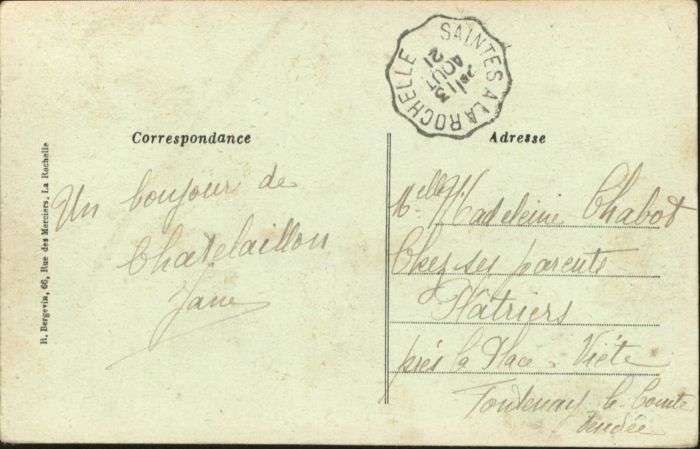 SAINTES A LA ROCHELLE
13
AOUT
21
Correspondance
Adresse
Un bonjour de
Chatelaillon
Jane
Melle Madeleine Chabot
Chez ses parents
Plâtriers
près la Place Viète
Fontenay le Comte
Vendée
R. Bergevin, 66, Rue des Merciers, La Rochelle